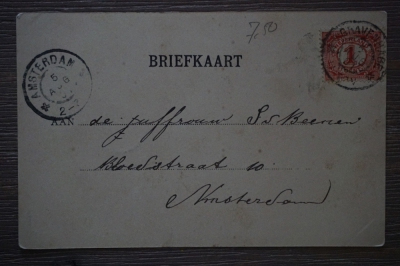 7,50
BRIEFKAART
AMSTERDAM
5
2-7
1
AAN de juffrouw S. v. Beenen
Bloedstraat 10
Amsterdam